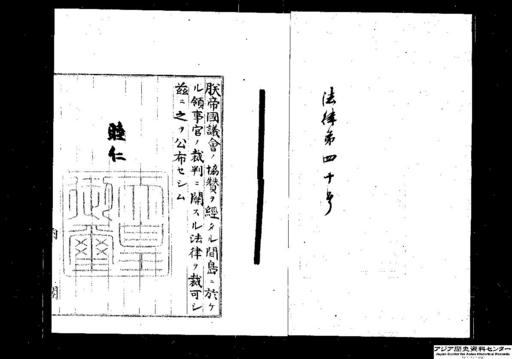 法律第四十号
朕帝國議會ノ協贊ヲ經タル間島ニ於ケ
ル領事官ノ裁判ニ關スル法律ヲ裁可シ
茲ニ之ヲ公布セシム
睦仁
天皇
御璽
内閣
アジア歴史資料センター
Japan Center for Asian Historical Records